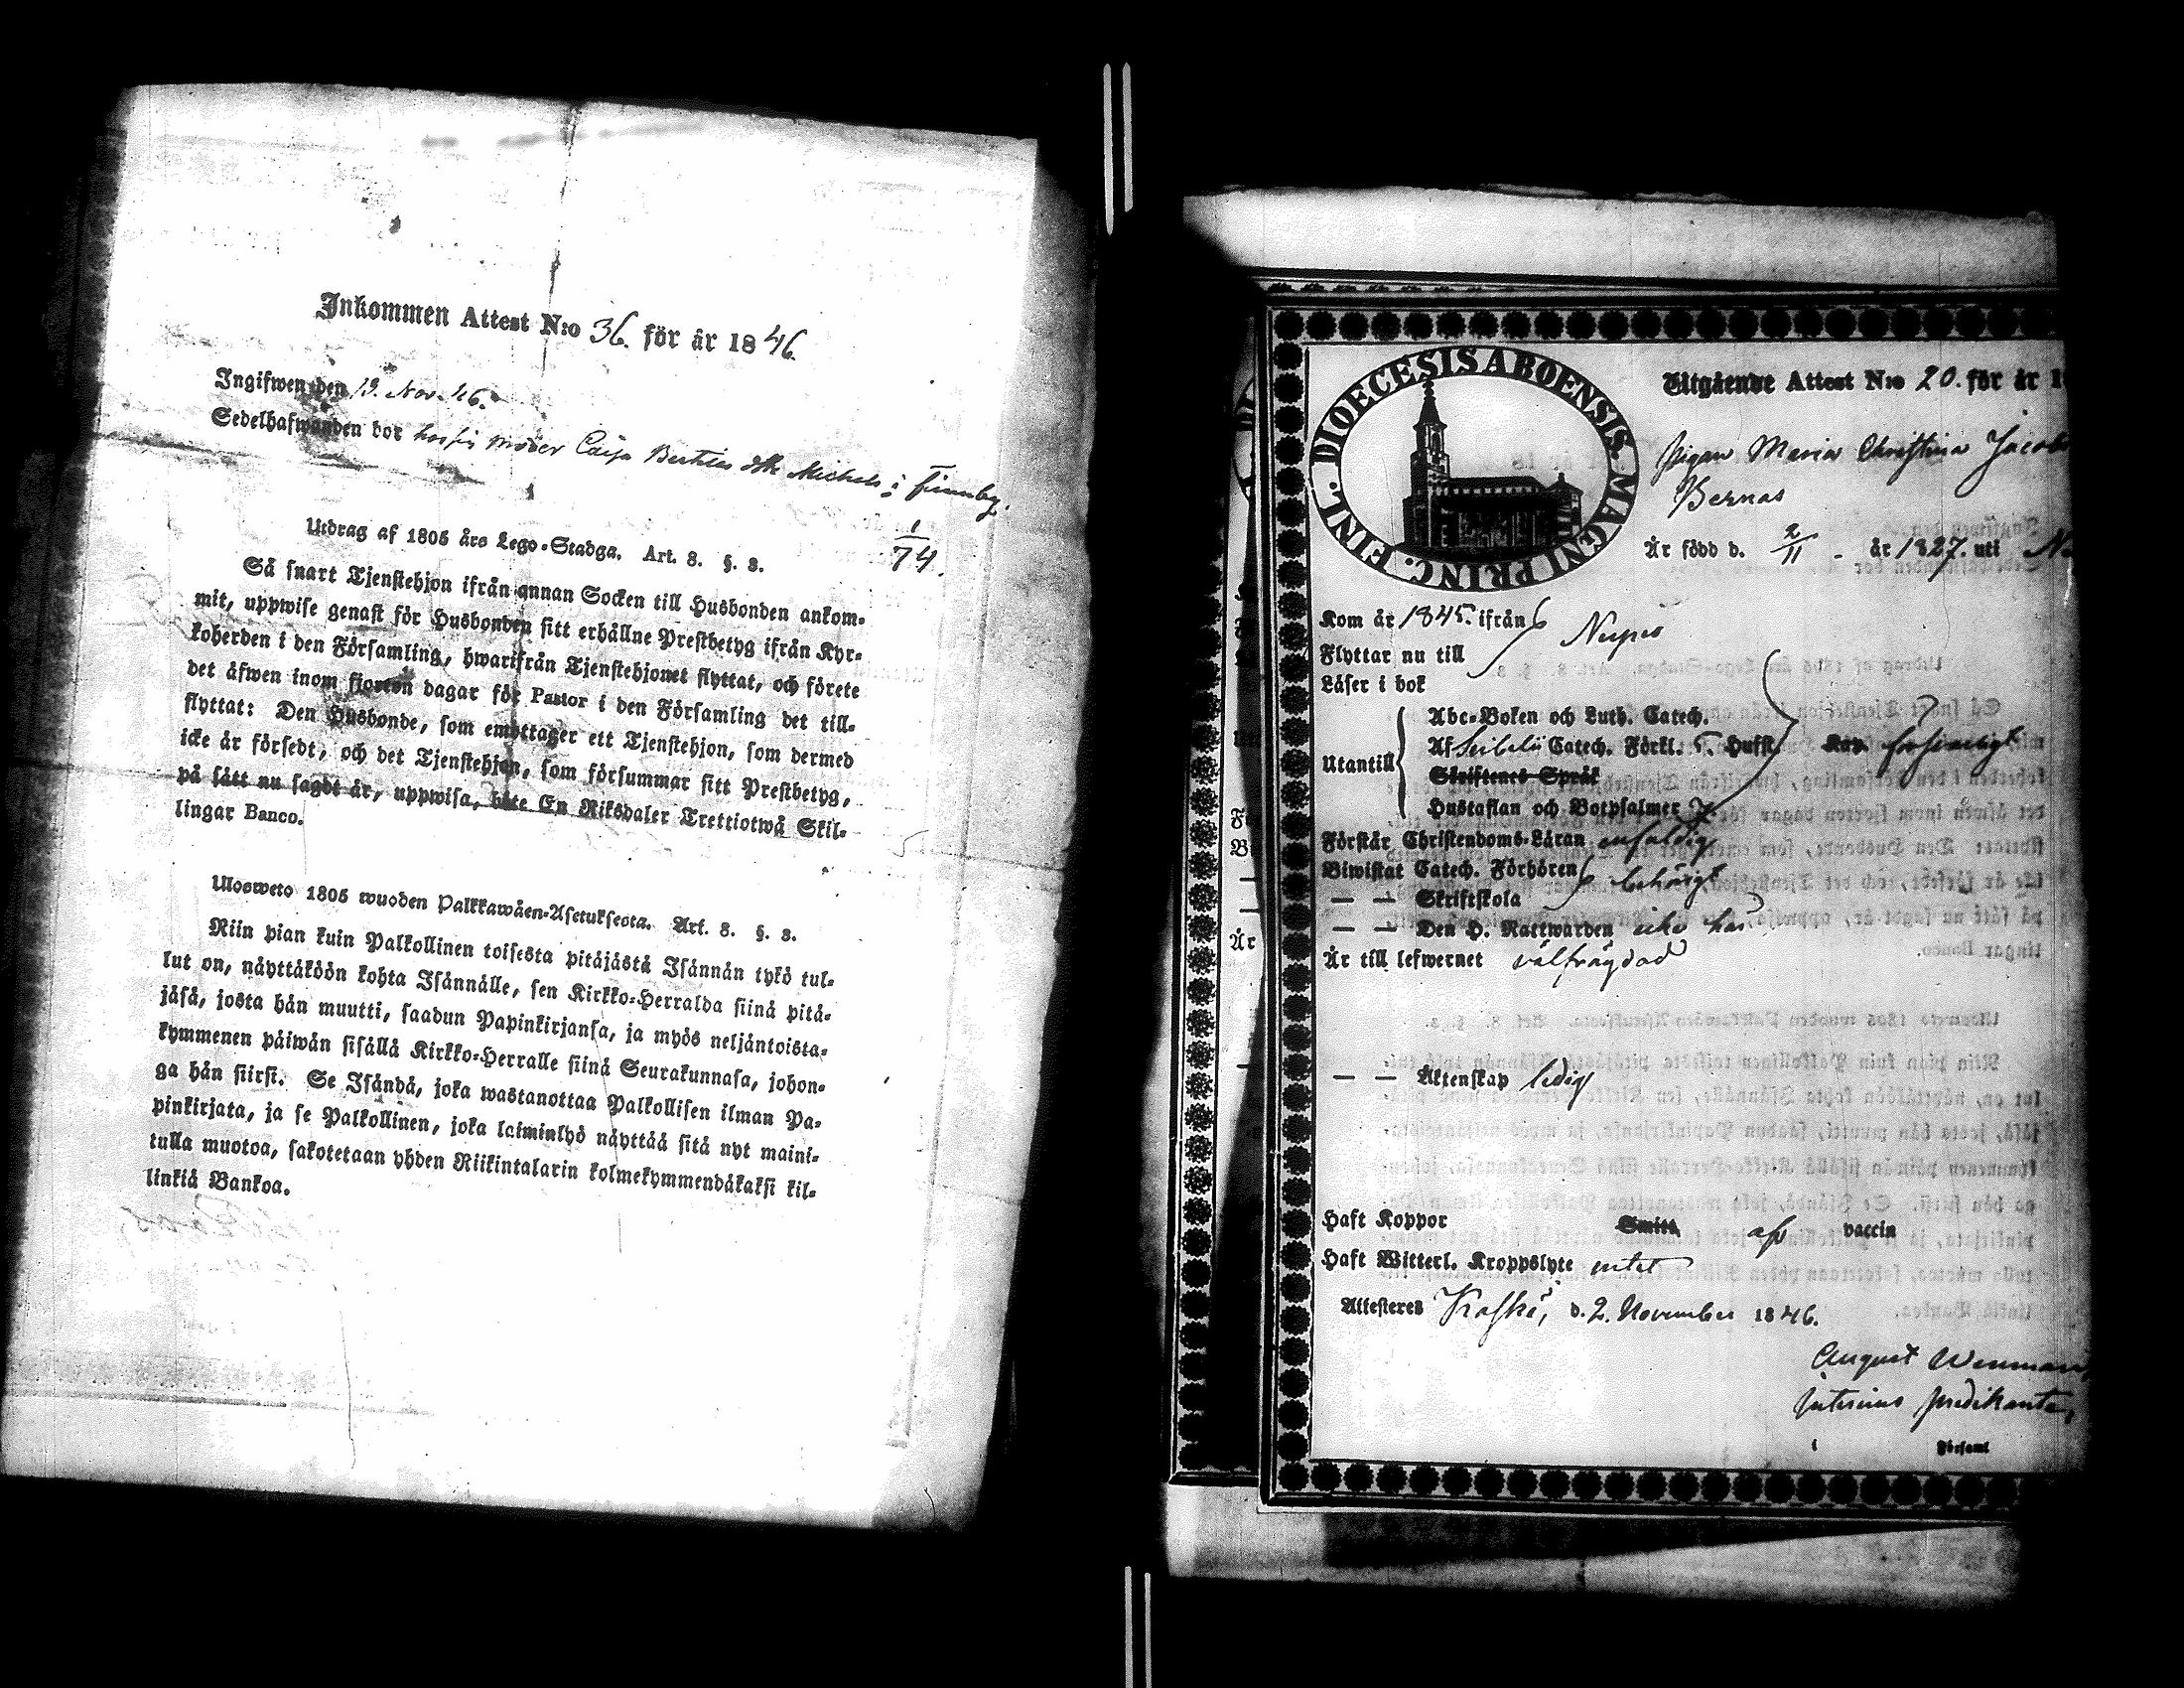 Inkommen Attest N:o 36. för år 1846.
Ingifwen den 13. Nov. 46.
Sedelhafwanden bor hos sin moder Caisa Bertils dtr Michels i Finnby.
1/74.
Utdrag af 1805 års Lego-Stadga. Art. 8. §. 3.
Så snart Tjenstehjon ifrån annan Socken till Husbonden ankom-
mit, uppwise genast för Husbonden sitt erhållne Prestbetyg ifrån Kyr-
koherden i den Församling, hwarifrån Tjenstehjonet flyttat, och förete
det äfwen inom fjorton dagar för Pastor i den Församling det till-
flyttat: Den Husbonde, som emottager ett Tjenstehjon, som dermed
icke är försedt, och det Tjenstehjon, som försummar sitt Prestbetyg,
på sätt nu sagdt är, uppwisa, böte En Riksdaler Trettiotwå Skil-
lingar Banco.
Ulosweto 1805 wuoden Palkkawäen-Asetuksesta. Art. 8. §. 3.
Niin pian kuin Palkollinen toisesta pitäjästä Isännän tykö tul-
lut on, näyttäköön kohta Isännälle, sen Kirkko-Herralda siinä pitä-
jäsä, josta hän muutti, saadun Papinkirjansa, ja myös neljäntoista-
kymmenen päiwän sisällä Kirkko-Herralle siinä Seurakunnasa, johon-
ga hän siirsi. Se Isändä, joka wastanottaa Palkollisen ilman Pa-
pinkirjata, ja se Palkollinen, joka laiminlyö näyttää sitä nyt maini-
tulla muotoa, sakotetaan yhden Riikintalarin kolmekymmendäkaksi kil-
linkiä Bankoa.
DIOECESIS ABOENSIS. MAGNI PRINC. FINL.
Utgående Attest N:o 20. för år 1
Pigan Maria Christina Jacobs
Bernas
Är född d. 2/11 - år 1827. uti
Kom år 1845. ifrån
Flyttar nu till Nerpes
Läser i bok
Utantill
Abc-Boken och Luth. Catech.
Af Seibelii Catech. Förkl. 5 Hufst. Kap. försvarligt
Skriftenes Språk
Hustaflan och Botpsalmer
Förstår Christendoms-Läran enfaldigt
Biwistat Catech. Förhören behörigt
— — Skriftskola
— — Den H. Nattwarden
Är till lefwernet välfrägdad
— — Äktenskap ledig
Haft Koppor Smitt. af vaccin
Haft Witterl. Kroppslyte intet
Attesteres Kaskö, d. 2. November 1846.
August Wenman,
Interims predikant
i Församl